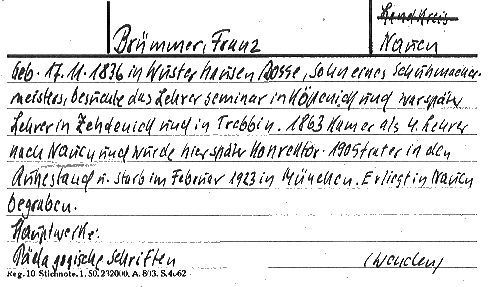 Landkreis
Brümmer, Franz
Nauen
Geb. 17.11.1836 in Wusterhausen Dosse, Sohn eines Schuhmacher-
meisters, besuchte das Lehrerseminar in Köpenick und war später
Lehrer in Zehdenick und in Trebbin. 1863 kam er als 4. Lehrer
nach Nauen und wurde hier später Konrektor. 1905 trat er in den
Ruhestand u. starb im Februar 1923 in München. Er liegt in Nauen
begraben.
Hauptwerke:
Pädagogische Schriften
(wenden)
Reg. 10 Stichnote. 1. 50. 232000. A. 803. S. 4.62